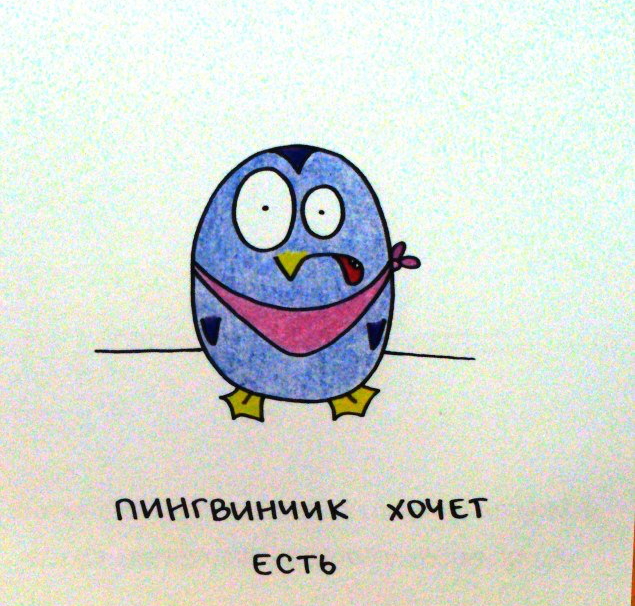 ПИНГВИНЧИК ХОЧЕТ
ЕСТЬ